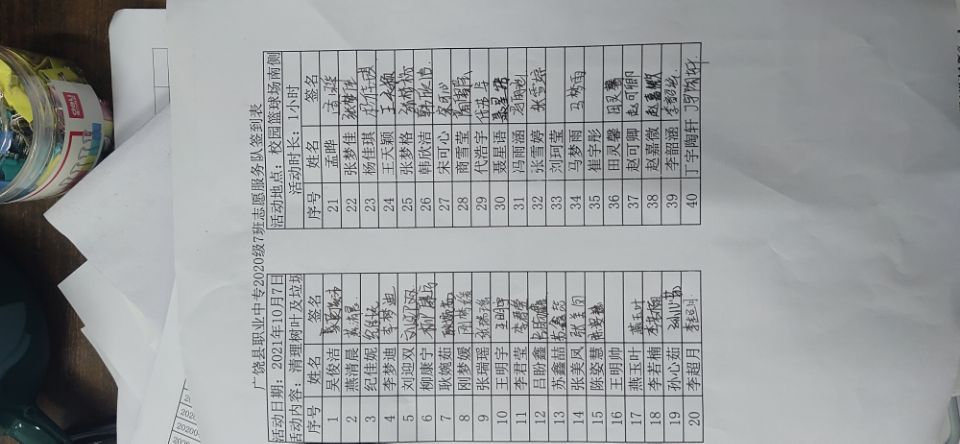 广饶县职业中专2020级7班志愿服务队签到表
活动日期：2021年10月7日 活动地点：校园篮球场南侧
活动内容：清理树叶及垃圾 活动时长：1小时
序号 姓名 签名 序号 姓名 签名
1 吴俊洁 21 孟晔 孟晔
2 燕清晨 22 张梦佳 张梦佳
3 纪佳妮 23 杨佳琪
4 李梦迪 李梦迪 24 王天颖 王天颖
5 刘迎双 刘迎双 25 张梦格 张梦格
6 柳康宁 柳康宁 26 韩欣洁 韩欣洁
7 耿婉茹 耿婉茹 27 宋可心 宋可心
8 刚梦媛 28 商雪莹
9 张瑞瑶 29 代浩宇 代浩宇
10 王明宇 王明宇 30 聂星语 聂星语
11 李君莹 李君莹 31 冯雨涵 冯雨涵
12 吕盼鑫 吕盼鑫 32 张雪婷 张雪婷
13 苏鑫喆 33 刘珂莹
14 张美凤 张美凤 34 马梦雨 马梦雨
15 陈姿慧 35 崔宇彤
16 王明帅 36 田灵馨 田灵馨
17 燕玉叶 燕玉叶 37 赵可卿 赵可卿
18 李若楠 李若楠 38 赵嘉微 赵嘉微
19 孙心茹 39 李韶涵
20 李超月 40 丁宇陶轩
deli